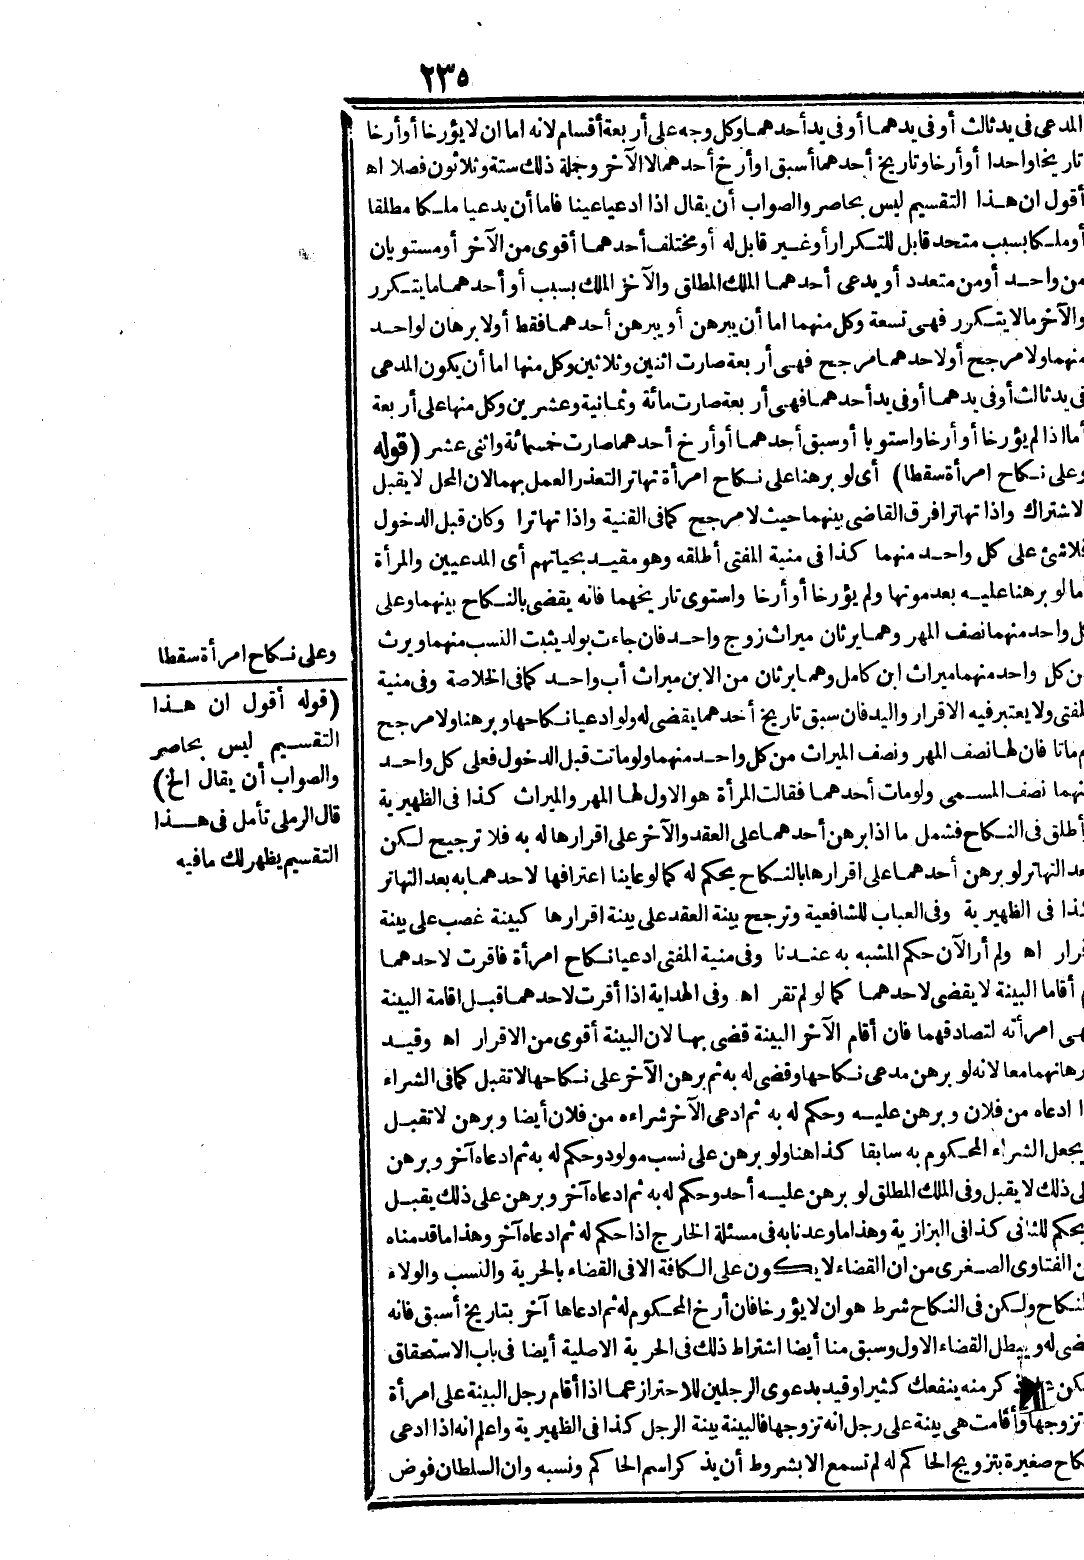 ٢٣٥
المدعى فى يد ثالث أو فى يدهما أو فى يد أحدهما وكل وجه على أربعة أقسام لانه اما ان لا يؤرخا أو أرخا
تاريخا واحدا أو أرخا وتاريخ أحدهما أسبق أو أرخ أحدهما لا الآخر وجملة ذلك ستة وثلاثون فصلا اه
أقول ان هذا التقسيم ليس بحاصر والصواب أن يقال اذا ادعيا عينا فاما أن يدعيا ملكا مطلقا
أو ملكا بسبب متحد قابل للتكرار أو غير قابل له أو مختلف أحدهما أقوى من الآخر أو مستويان
من واحد أو من متعدد أو يدعى أحدهما الملك المطلق والآخر الملك بسبب أو أحدهما ما يتكرر
والآخر ما لا يتكرر فهى تسعة وكل منهما اما أن يبرهن أو يبرهن أحدهما فقط أو لا برهان لواحد
منهما ولا مرجح أو لاحدهما مرجح فهى أربعة صارت اثنين وثلاثين وكل منها اما أن يكون المدعى
فى يد ثالث أو فى يدهما أو فى يد أحدهما فهى أربعة صارت مائة وثمانية وعشرين وكل منها على أربعة
أما اذا لم يؤرخا أو أرخا واستويا أو سبق أحدهما أو أرخ أحدهما صارت خمسمائة واثنى عشر (قوله
وعلى نكاح امرأة سقطا) أى لو برهنا على نكاح امرأة تهاتر التعذر العمل بهما لان المحل لا يقبل
الاشتراك واذا تهاترا فرق القاضى بينهما حيث لا مرجح كما فى القنية واذا تهاترا وكان قبل الدخول
فلا شئ على كل واحد منهما كذا فى منية المفتى أطلقه وهو مقيد بحياتهم أى المدعيين والمرأة
أما لو برهنا عليه بعد موتها ولم يؤرخا أو أرخا واستوى تاريخهما فانه يقضى بالنكاح بينهما وعلى
كل واحد منهما نصف المهر وهما يرثان ميراث زوج واحد فان جاءت بولد يثبت النسب منهما ويرث
من كل واحد منهما ميراث ابن كامل وهما يرثان من الابن ميراث أب واحد كما فى الخلاصة وفى منية
المفتى ولا يعتبر فيه الاقرار واليد فان سبق تاريخ أحدهما يقضى له ولو ادعيا نكاحها وبرهنا ولا مرجح
ثم ماتا فان لها نصف المهر ونصف الميراث من كل واحد منهما ولو ماتت قبل الدخول فعلى كل واحد
منهما نصف المسمى ولو مات أحدهما فقالت المرأة هو الاول لها المهر والميراث كذا فى الظهيرية
وأطلق فى النكاح فشمل ما اذا برهن أحدهما على العقد والآخر على اقرارها له به فلا ترجيح لكن
بعد التهاتر لو برهن أحدهما على اقرارها بالنكاح يحكم له كما لو عاينا اعترافها لاحدهما به بعد التهاتر
كذا فى الظهيرية وفى العباب للشافعية وترجح بينة العقد على بينة اقرارها كبينة غصب على بينة
اقرار اه ولم أر الآن حكم المشبه به عندنا وفى منية المفتى ادعيا نكاح امرأة فاقرت لاحدهما
ثم أقاما البينة لا يقضى لاحدهما كما لو لم تقر اه وفى الهداية اذا أقرت لاحدهما قبل اقامة البينة
فهى امرأته لتصادقهما فان أقام الآخر البينة قضى بها لان البينة أقوى من الاقرار اه وقيد
برهانهما معا لانه لو برهن مدعى نكاحها وقضى له به ثم برهن الآخر على نكاحها لا تقبل كما فى الشراء
اذا ادعاه من فلان وبرهن عليه وحكم له به ثم ادعى الآخر شراءه من فلان أيضا وبرهن لا تقبل
ويجعل الشراء المحكوم به سابقا كذا هنا ولو برهن على نسب مولود وحكم له به ثم ادعاه آخر وبرهن
على ذلك لا يقبل وفى الملك المطلق لو برهن عليه أحد وحكم له به ثم ادعاه آخر وبرهن على ذلك يقبل
ويحكم للثانى كذا فى البزازية وهذا ما وعدنا به فى مسئلة الخارج اذا حكم له ثم ادعاه آخر وهذا ما قدمناه
من الفتاوى الصغرى من ان القضاء لا يكون على الكافة الا فى القضاء بالحرية والنسب والولاء
والنكاح ولكن فى النكاح شرط هو ان لا يؤرخا فان أرخ المحكوم له ثم ادعاها آخر بتاريخ أسبق فانه
يقضى له ويبطل القضاء الاول وسبق منا أيضا اشتراط ذلك فى الحرية الاصلية أيضا فى باب الاستحقاق
ذكر منه ينفعك كثيرا وقيد بدعوى الرجلين للاحتراز عما اذا أقام رجل البينة على امرأة
تزوجها وأقامت هى بينة على رجل انه تزوجها فالبينة بينة الرجل كذا فى الظهيرية واعلم انه اذا ادعى
نكاح صغيرة بتزويج الحاكم له لم تسمع الا بشروط أن يذكر اسم الحاكم ونسبه وان السلطان فوض
وعلى نكاح امرأة سقطا
(قوله أقول ان هذا
التقسيم ليس بحاصر
والصواب أن يقال الخ)
قال الرملى تأمل فى هذا
التقسيم يظهر لك ما فيه